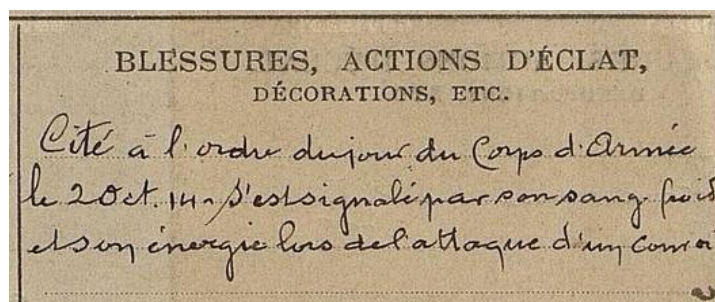 BLESSURES, ACTIONS D'ÉCLAT,
DÉCORATIONS, ETC.
Cité à l'ordre du jour du Corps d'Armée
le 2 Oct. 14 - S'est signalé par son sang-froid
et son énergie lors de l'attaque d'un convoi